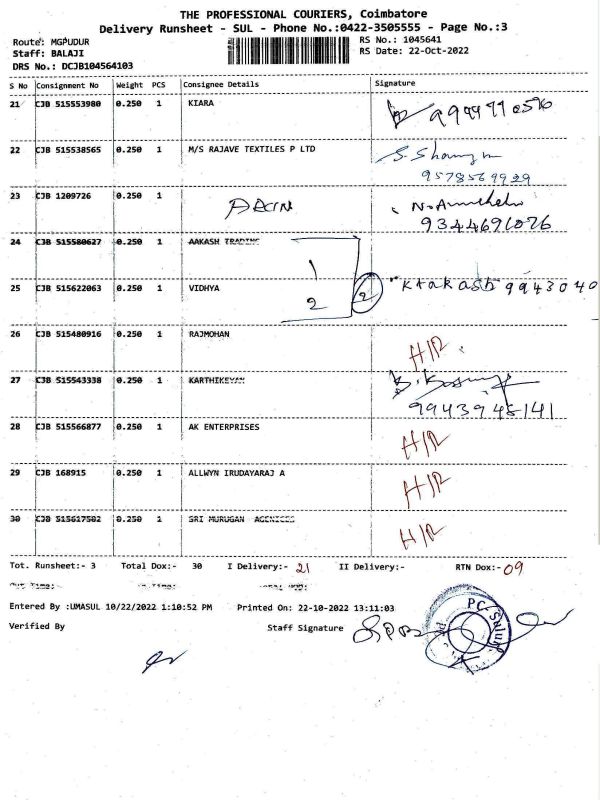 THE PROFESSIONAL COURIERS, Coimbatore
Delivery Runsheet - SUL - Phone No.:0422-3505555 - Page No.:3
Route: MGPUDUR
RS No.: 1045641
Staff: BALAJI
RS Date: 22-Oct-2022
DRS No.: DCJB104564103
S No Consignment No Weight PCS Consignee Details Signature
21 CJB 515553980 0.250 1 KIARA
22 CJB 515538565 0.250 1 M/S RAJAVE TEXTILES P LTD
9578569929
23 CJB 1209726 0.250 1
9344691076
24 CJB 515580627 0.250 1 AAKASH TRADING
1
25 CJB 515622063 0.250 1 VIDHYA 2 9943040
2
26 CJB 515480916 0.250 1 RAJMOHAN H/R
27 CJB 515543338 0.250 1 KARTHIKEYAN
9943948141
28 CJB 515566877 0.250 1 AK ENTERPRISES H/R
29 CJB 168915 0.250 1 ALLWYN IRUDAYARAJ A H/R
30 CJB 515617502 0.250 1 SRI MURUGAN AGENICES H/R
Tot. Runsheet:- 3 Total Dox:- 30 I Delivery:- 21 II Delivery:- RTN Dox:- 09
Entered By :UMASUL 10/22/2022 1:10:52 PM Printed On: 22-10-2022 13:11:03
Verified By Staff Signature